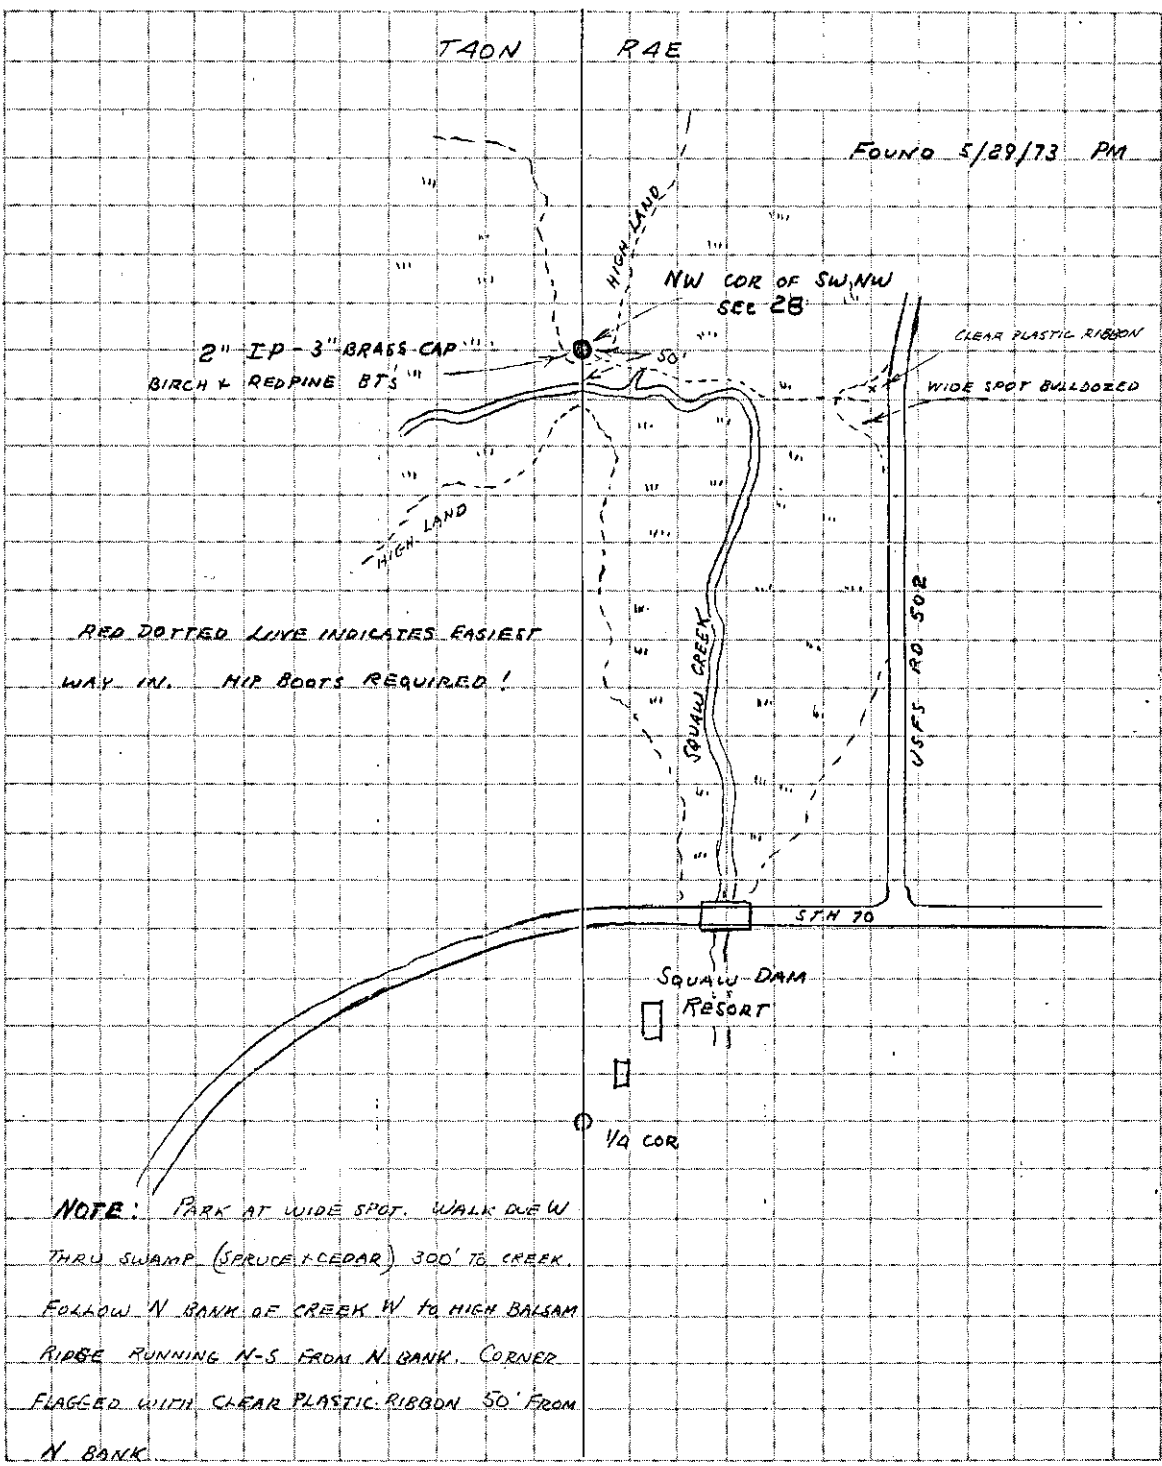 T40N R4E
FOUND 5/29/73 PM
HIGH LAND
NW COR OF SW,NW
SEC 28
CLEAR PLASTIC RIBBON
2" IP - 3" BRASS CAP
50'
BIRCH & REDPINE BTS
WIDE SPOT BULLDOZED
HIGH LAND
RED DOTTED LINE INDICATES EASIEST
WAY IN. HIP BOOTS REQUIRED!
SQUAW CREEK
USFS RD. 502
STH 70
SQUAW DAM
RESORT
1/4 COR
NOTE: PARK AT WIDE SPOT. WALK DUE W
THRU SWAMP (SPRUCE & CEDAR) 300' TO CREEK.
FOLLOW N BANK OF CREEK W TO HIGH BALSAM
RIDGE RUNNING N-S FROM N BANK. CORNER
FLAGGED WITH CLEAR PLASTIC RIBBON 50' FROM
N BANK.